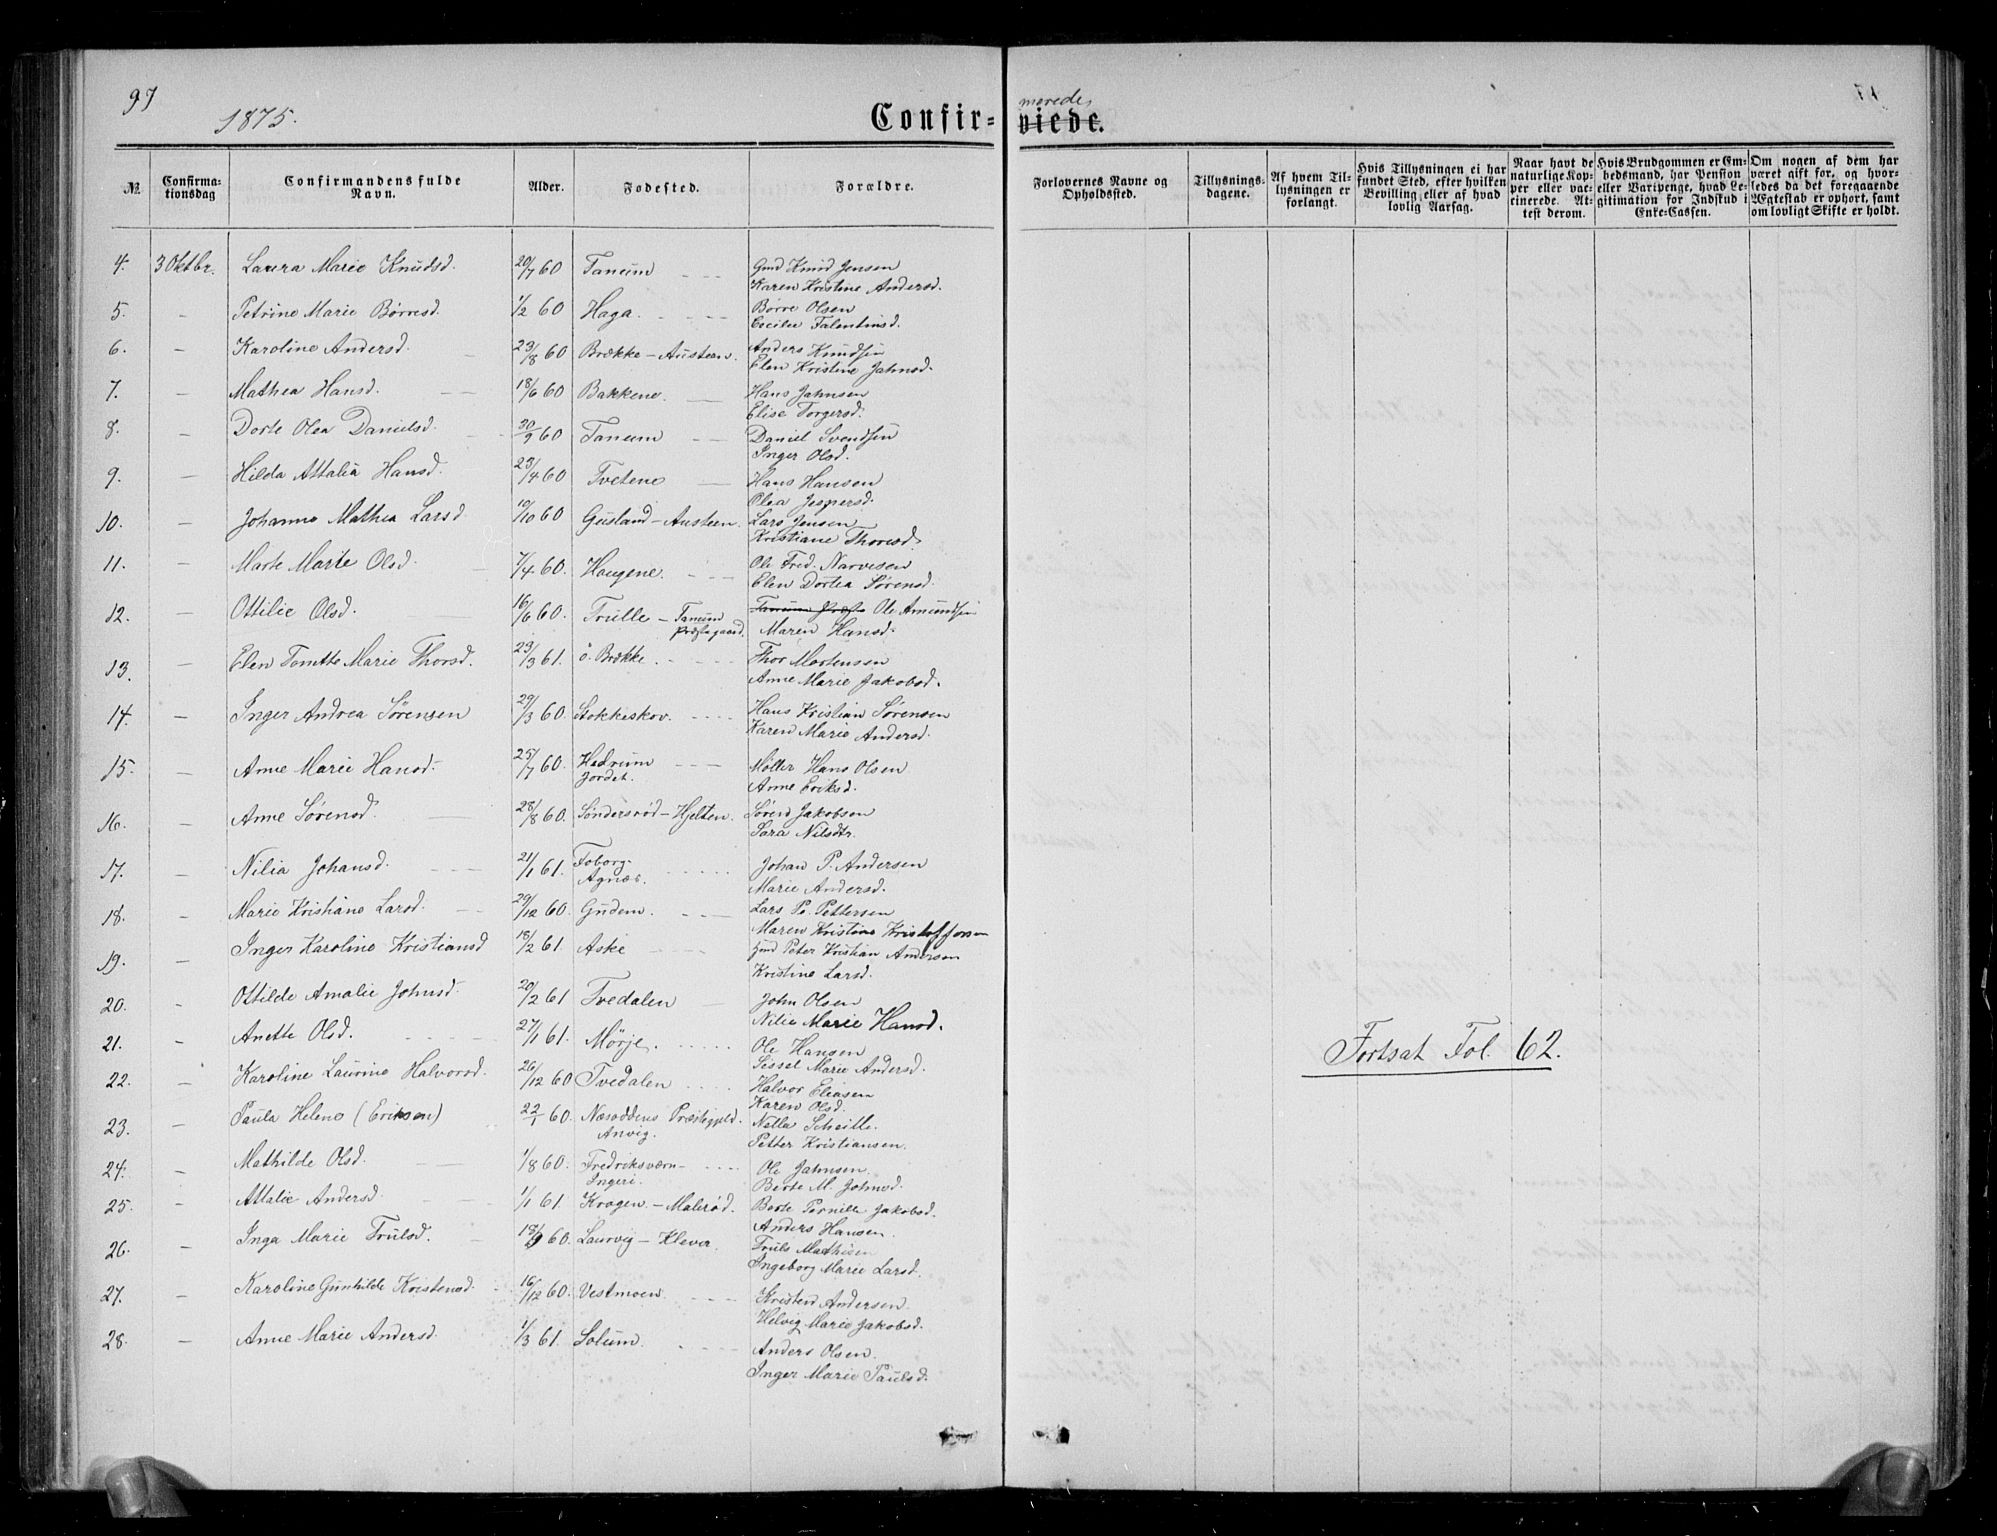 97
1875.
Confir- merede, viede.
№ Confirmationsdag Confirmandens fulde Navn. Alder. Fødested. Forældre.
Forlovernes Navne og Opholdssted. Tillysningsdagene. Af hvem Tillysningen er forlangt. Hvis Tillysningen ei har fundet Sted, efter hvilken Bevilling eller af hvad lovlig Aarsag. Naar havt de naturlige Kopper eller vaccinerede. Attest derom. Hvis Brudgommen er Embedsmand, har Pension eller Varipenge, hvad Legitimation for Indskud i Enke-Cassen. Om nogen af dem har været gift for, og hvorledes da det foregaaende Ægteskab er ophørt, samt om lovligt Skifte er holdt.
4. 3 Oktbr. Laura Marie Knudsd. 20/7 60 Tanum Gmd Knud Jensen
Karen Kristine Andersd.
5. – Petrine Marie Børresd. 1/2 60 Haga. Børre Olsen
Cecilie Falentinsd.
6. – Karoline Andersd. 23/8 60 Brække – Austeen. Anders Knudsen
Elen Kristine Jahnsd.
7. – Mathea Hansd. 18/6 60 Bakkene. Hans Jahnsen
Elise Torgersd.
8. – Dorte Olea Danielsd. 30/9 60 Tanum Daniel Svendsen
Inger Olsd.
9. – Hilda Attalia Hansd. 23/4 60 Tvetene Hans Hansen
Olea Jespersd.
10. – Johanne Mathea Larsd. 10/10 60 Gusland – Austeen. Lars Jensen
Kristiane Thoresd.
11. – Marte Marie Olsd. 7/4 60. Haugene. Ole Fred. Narvesen
Elen Dortea Sørensd.
12. – Ottilie Olsd. 16/6 60. Trulle – Tanum Præstegaard. Tanum Præst Ole Amundsen
Maren Hansd.
13. – Elen Tomtte Marie Thorsd. 23/3 61. ö. Brække. Thor Mortensen
Anne Marie Jakobsd.
14. – Inger Andrea Sørensen 29/3 60. Stokkeskov. Hans Kristian Sørensen
Karen Marie Andersd.
15. – Anne Marie Hansd. 25/7 60. Hedrum Jordet. Møller Hans Olsen
Anne Eriksd.
16. – Anne Sørensd. 28/8 60. Søndersrød – Hjelten. Søren Jakobsen
Sara Nilsdtr.
17. – Nilia Johansd. 21/1 61. Foborg. Agnæs. Johan P. Andersen
Marie Andersd.
18. – Marie Kristiane Larsd. 29/12 60. Gudem. Lars P. Pettersen
Maren Kristine Kristoffersen
19. – Inger Karoline Kristiansd 18/2 61. Aske Gmd Peter Kristian Andersen
Kristine Larsd.
20. – Ottilde Amalie Johnsd. 20/2 61 Tvedalen John Olsen
Nilia Marie Hansd.
21. – Anette Olsd. 27/1 61. Mørje. Ole Hansen
Sissel Marie Andersd.
22. – Karoline Laurine Halvorsd. 26/12 60 Tvedalen Halvor Eliasen
Karen Olsd.
23. – Paula Helene (Eriksen) 22/1 60. Næsoddens Præstegjeld. Anvig. Nella Scheitle.
Petter Kristiansen.
24. – Mathilde Olsd. 1/8 60. Fredriksværn – Ingeri. Ole Jahnsen.
Berte M. Johnsd.
25. – Attalie Andersd. 1/1 61. Krogen. – Malerød. Berte Pernille Jakobsd.
Anders Hansen.
26. – Inga Marie Trulsd. 18/9 60. Laurvig – Klever. Truls Mathisen
Ingeborg Marie Larsd.
27. – Karoline Gunhilde Kristensd. 16/12 60. Vestmoen. Kristen Andersen.
Helvig Marie Jakobsd.
28. – Anne Marie Andersd. 1/3 61. Solum. Anders Olsen.
Inger Marie Paulsd.
Fortsat Fol. 62.